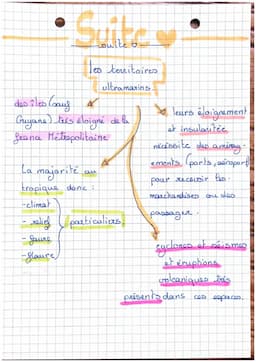 Suite
suite :
les territoires
ultramarins
des îles (sauf
Guyane) très éloigné de la
France Métropolitaine
leurs éloignement
et insularitée
nécessite des aménag-
ements (ports, aéroport)
pour recevoir les
marchandises ou des
passager.
La majorité au
tropique donc :
-climat
-relief
-faune
-flaure
particuliers
cyclones et séismes
et éruptions
volcaniques très
présents dans ces espaces.